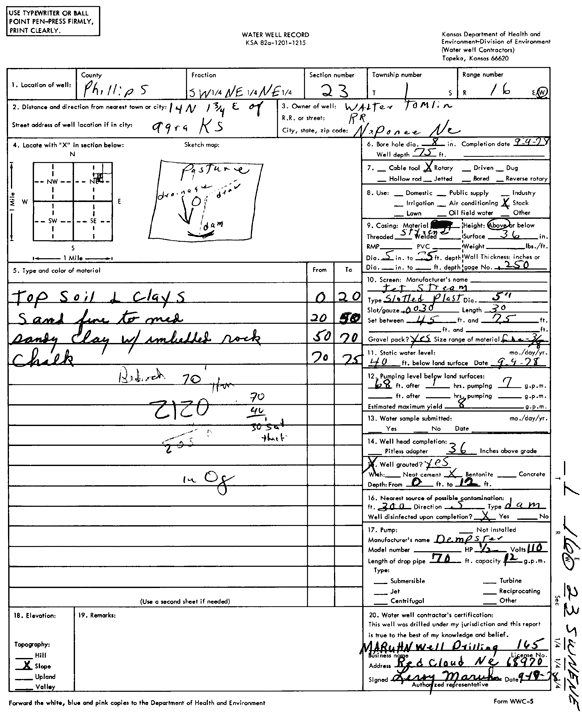 USE TYPEWRITER OR BALL
POINT PEN-PRESS FIRMLY,
PRINT CLEARLY.
WATER WELL RECORD
KSA 82a-1201-1215
Kansas Department of Health and
Environment-Division of Environment
(Water well Contractors)
Topeka, Kansas 66620
1. Location of well: County Phillips Fraction SW 1/4 NE 1/4 NE 1/4 Section number 23 Township number T 1 S Range number R 16 E/W
2. Distance and direction from nearest town or city: 14N 1 3/4 E of
Street address of well location if in city: agra KS
3. Owner of well: Walter Tomlin
R.R. or street: RR
City, state, zip code: Naponee Ne
4. Locate with "X" in section below:
N
NW NE
W E
SW SE
S
1 Mile
1 Mile
Sketch map:
Pasture
drainage
draw
dam
6. Bore hole dia. 8 in. Completion date 9-9-78
Well depth 75 ft.
7. Cable tool X Rotary Driven Dug
Hollow rod Jetted Bored Reverse rotary
8. Use: Domestic Public supply Industry
Irrigation Air conditioning X Stock
Lawn Oil field water Other
9. Casing: Material Styrene Height: Above or below
Threaded Welded Surface 36 in.
RMP PVC Weight lbs./ft.
Dia. 5 in. to 75 ft. depth Wall Thickness: inches or
Dia. in. to ft. depth gage No. .250
5. Type and color of material From To
Top Soil & Clays 0 20
Sand fine to med 20 50
sandy Clay w/ imbedded rock 50 70
Chalk 70 75
Bedrock 70'
2120
70
30 sat
thick
in Og
10. Screen: Manufacturer's name
Jet Stream
Type Slotted Plast Dia. 5"
Slot/gauze .0030 Length 30
Set between 45 ft. and 75 ft.
ft. and ft.
Gravel pack? yes Size range of material
11. Static water level: mo./day/yr.
40 ft. below land surface Date 9-9-78
12. Pumping level below land surfaces:
68 ft. after 1 hrs. pumping 7 g.p.m.
ft. after hrs. pumping g.p.m.
Estimated maximum yield 8 g.p.m.
13. Water sample submitted: mo./day/yr.
Yes No Date
14. Well head completion:
Pitless adapter 36 Inches above grade
15. Well grouted? yes
With: Neat cement X Bentonite Concrete
Depth: From 0 ft. to 12 ft.
16. Nearest source of possible contamination:
ft. 300 Direction S Type dam
Well disinfected upon completion? X Yes No
17. Pump: Not installed
Manufacturer's name Dempster
Model number HP 1/2 Volts 110
Length of drop pipe 70 ft. capacity 12 g.p.m.
Type:
Submersible Turbine
Jet Reciprocating
Centrifugal Other
(Use a second sheet if needed)
18. Elevation:
Topography:
Hill
X Slope
Upland
Valley
19. Remarks:
20. Water well contractor's certification:
This well was drilled under my jurisdiction and this report
is true to the best of my knowledge and belief.
MARUHN Well Drilling 165
Business name License No.
Address Red Cloud Ne 68970
Signed Leroy Maruhn Date 9-19-78
Authorized representative
Forward the white, blue and pink copies to the Department of Health and Environment
Form WWC-5
T 1 R 16W Sec 23 SWNENE
1/4 1/4 1/4